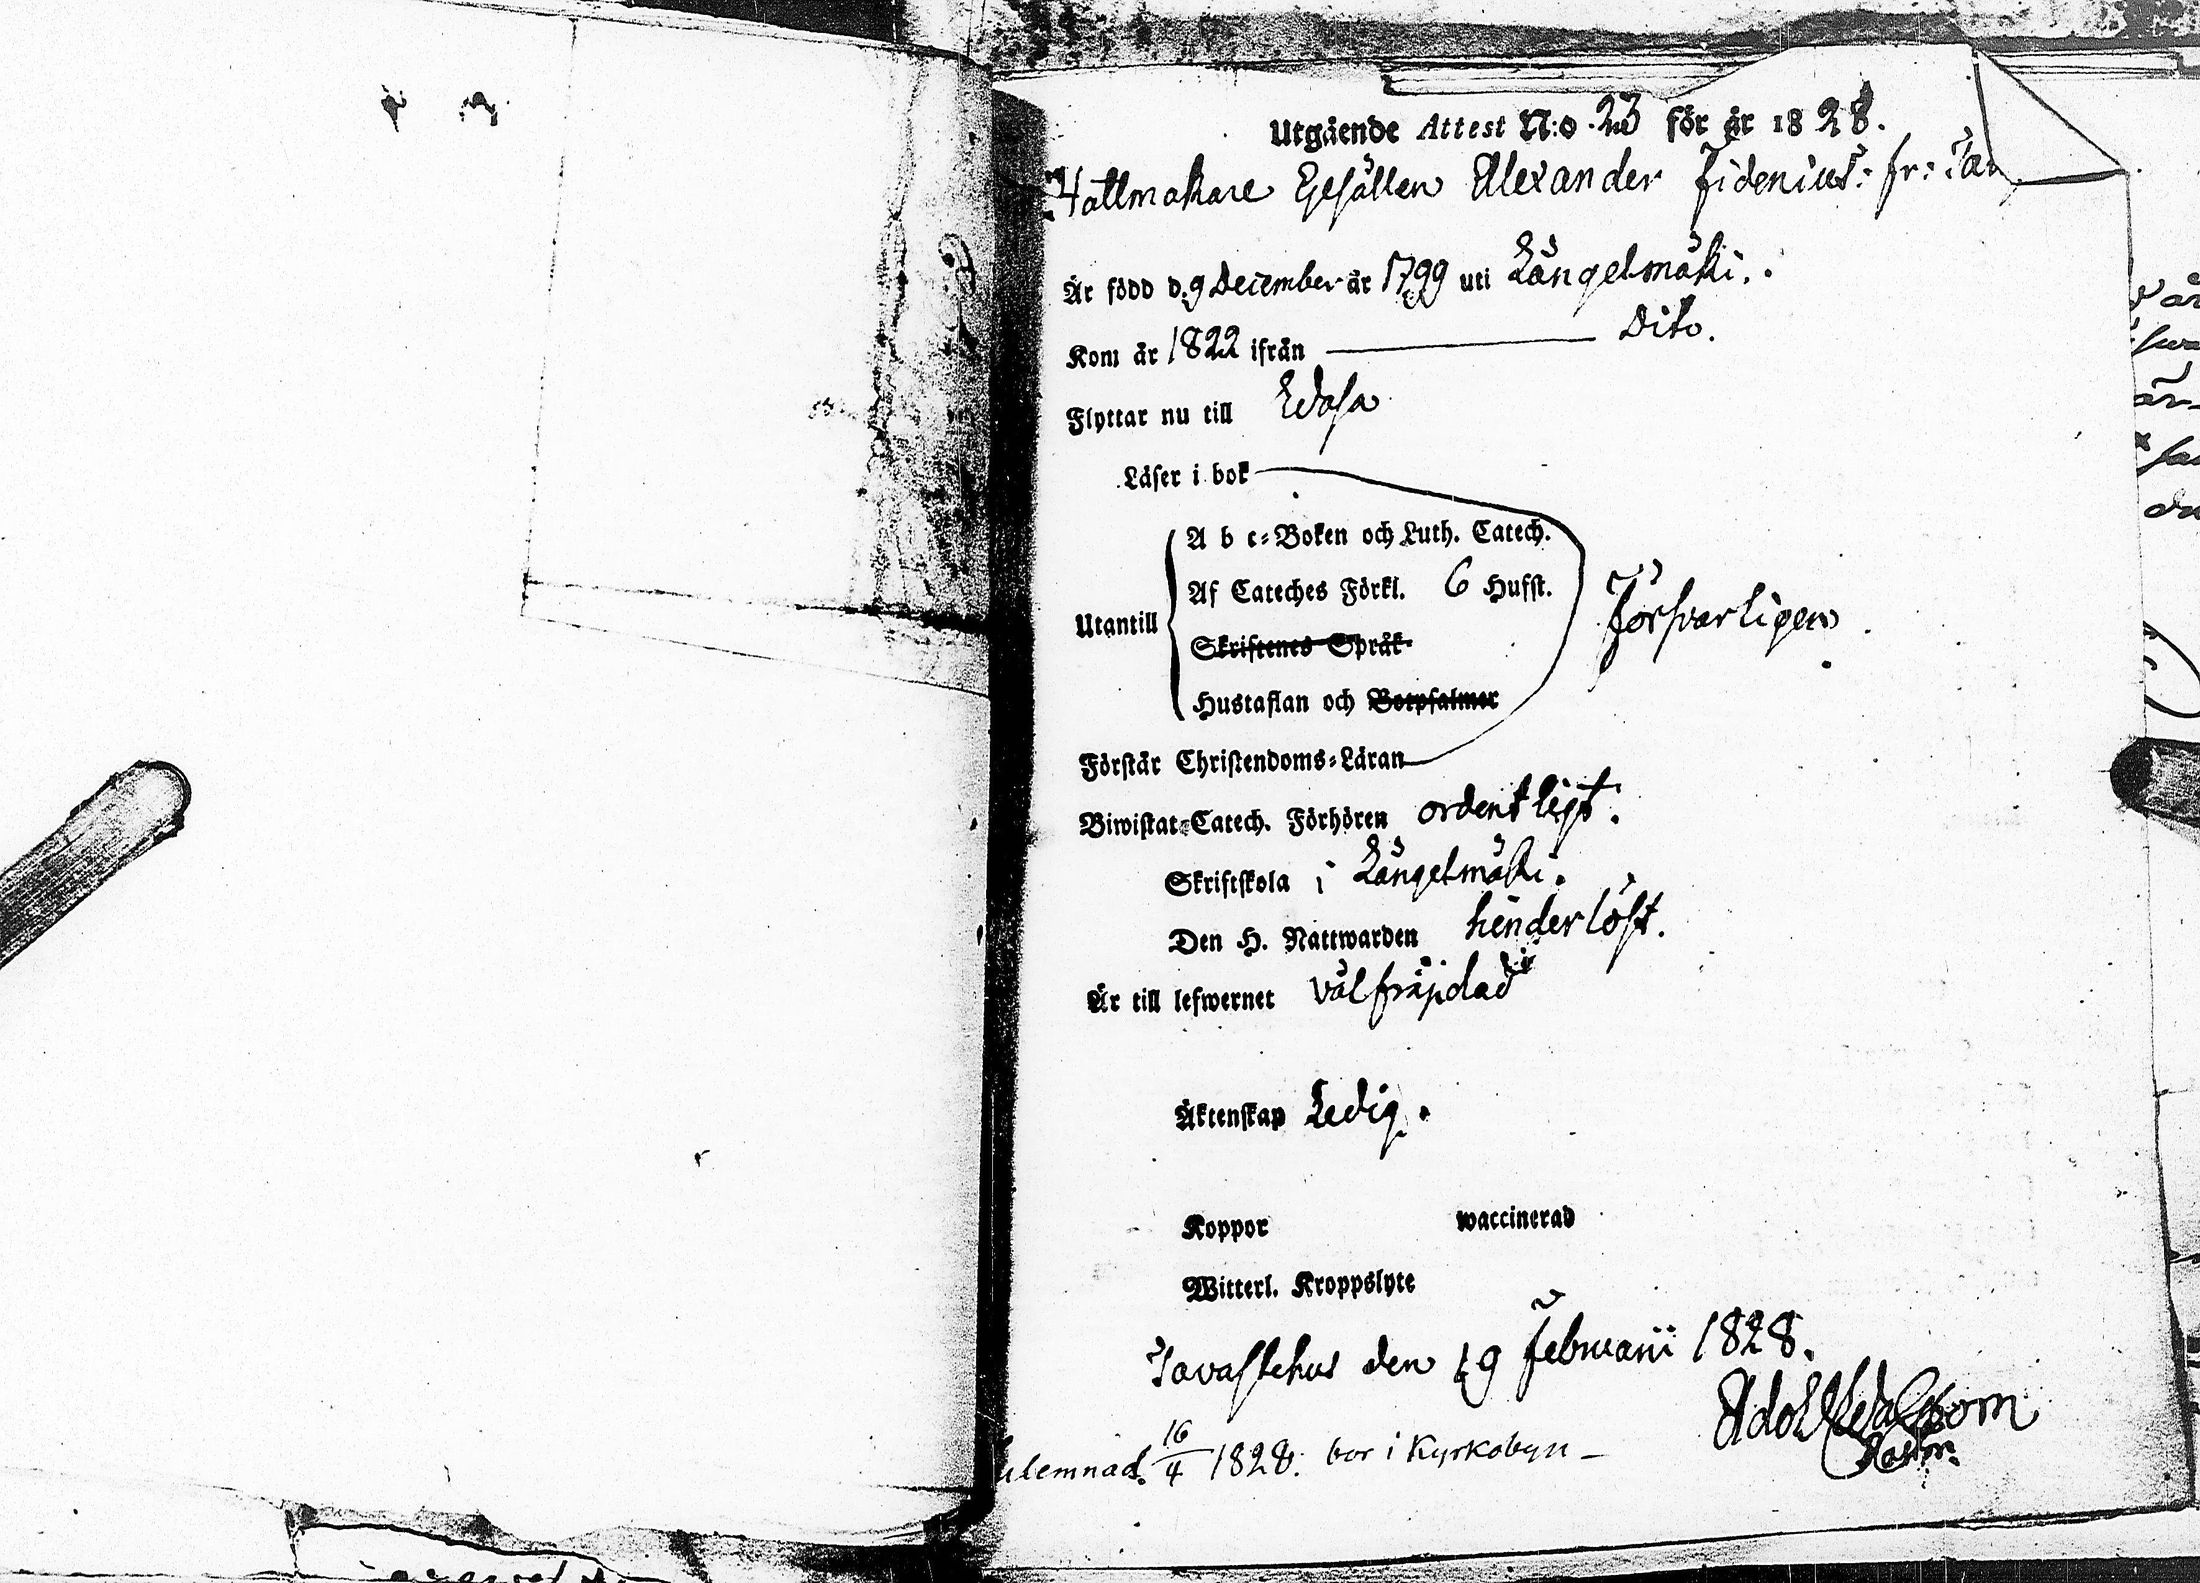 Utgående Attest N:o 23 för år 1828.
Hattmakare Gesällen Alexander Fidenius: fr: Tav
Är född d. 9 December år 1799 uti Längelmäki.
Kom år 1822 ifrån Dito.
Flyttar nu till
Läser i bok
A b c-Boken och Luth. Catech.
Af Cateches Förkl. 6 Hufst.
Utantill
Försvarligen
Skriftenes Språk
Hustaflan och Botpsalmer
Förstår Christendoms-Läran
Biwistat Catech. Förhören ordentligt.
Skriftskola i Längelmäki.
Den H. Nattwarden hinderlöst.
Är till lefwernet välfräjdad
Äktenskap Ledig.
Koppor waccinerad
Witterl. Kroppslyte
Tavastehus den 19 Februarii 1828.
Adolf
inlemnad. 16/4 1828. bor i Kyrkobyn